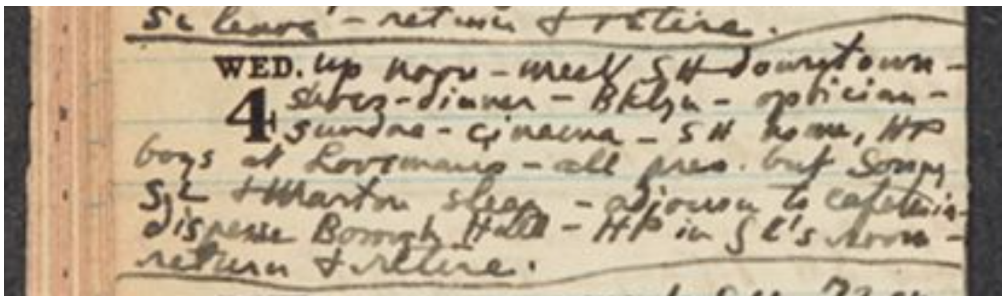 SL leave - return & retire.
WED. up noon - meet SH downtown -
4 shoes - dinner - Bklyn - optician -
sundae - cinema - SH home, HP
boys at Lovemans - all pres. but Sonny
SL & Morton sleep - adjourn to cafeteria -
disperse Borough Hall - HP in SL's room -
return & retire.